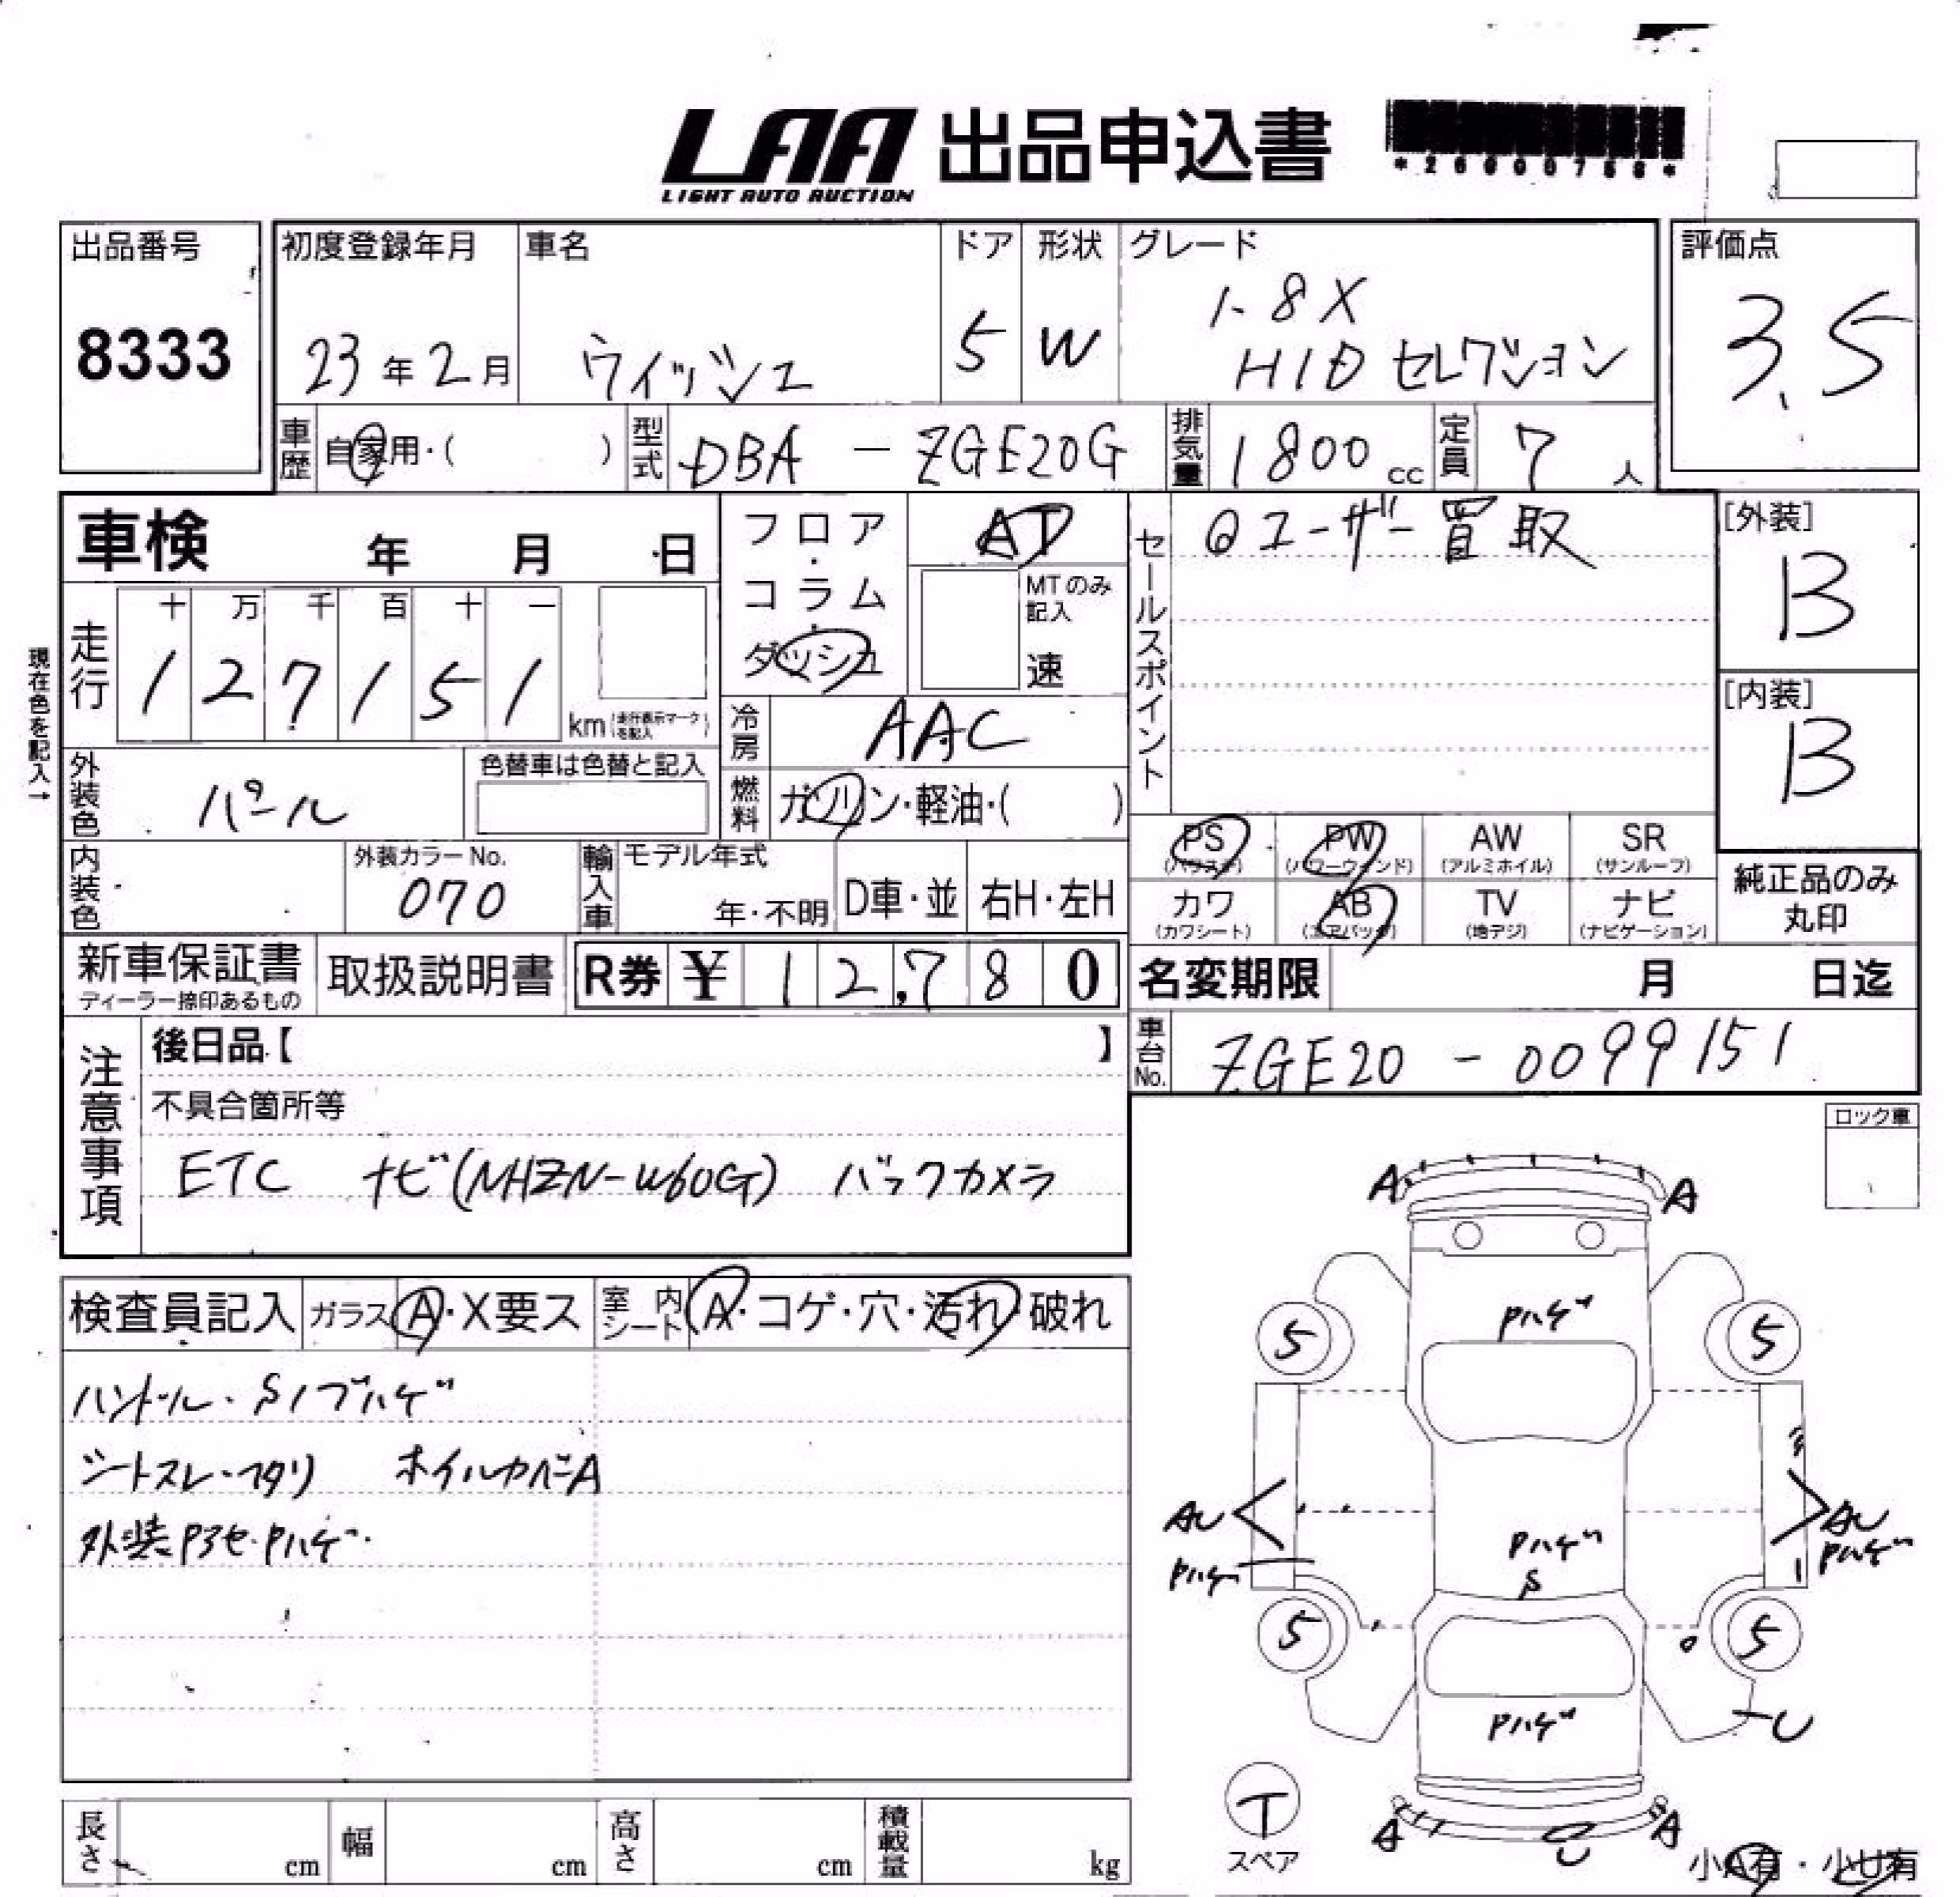 LAA 出品申込書
LIGHT AUTO AUCTION
出品番号
8333
初度登録年月
23年2月
車名
ウィッシュ
ドア
5
形状
W
グレード
1.8X
HIDセレクション
評価点
3.5
車歴 自家用・( )
型式 DBA - ZGE20G
排気量 1800cc
定員 7人
車検 年 月 日
フロア・コラム・ダッシュ
AT
MTのみ記入
速
セールスポイント
ユーザー買取
[外装]
B
[内装]
B
現在色を記入→
走行
十 万 千 百 十 一
1 2 7 1 5 1 km (走行表示マークを記入)
冷房 AAC
外装色 パール
色替車は色替と記入
燃料 ガソリン・軽油・( )
PS (パワステ)
PW (パワーウィンド)
AW (アルミホイル)
SR (サンルーフ)
カワ (カワシート)
AB (エアバッグ)
TV (地デジ)
ナビ (ナビゲーション)
純正品のみ丸印
内装色
外装カラーNo.
070
輸入車
モデル年式
年・不明
D車・並
右H・左H
新車保証書
ディーラー捺印あるもの
取扱説明書
R券 ¥ 12,780
名変期限 月 日迄
車台No. ZGE20 - 0099151
注意事項
後日品【 】
不具合箇所等
ETC ナビ(MHZN-W60G) バックカメラ
ロック車
検査員記入
ガラス A・X要ス
室内シート A・コゲ・穴・汚れ・破れ
ハンドル・Sノブハゲ
シートスレ・スタリ ホイルカバーA
外装Pアセ・Pハゲ
A A
Pハゲ
5 5
AU AU
Pハゲ Pハゲ
Pハゲ
S
5 5
Pハゲ
U
T
スペア
A U A
小A有・小U有
長さ cm
幅 cm
高さ cm
積載量 kg